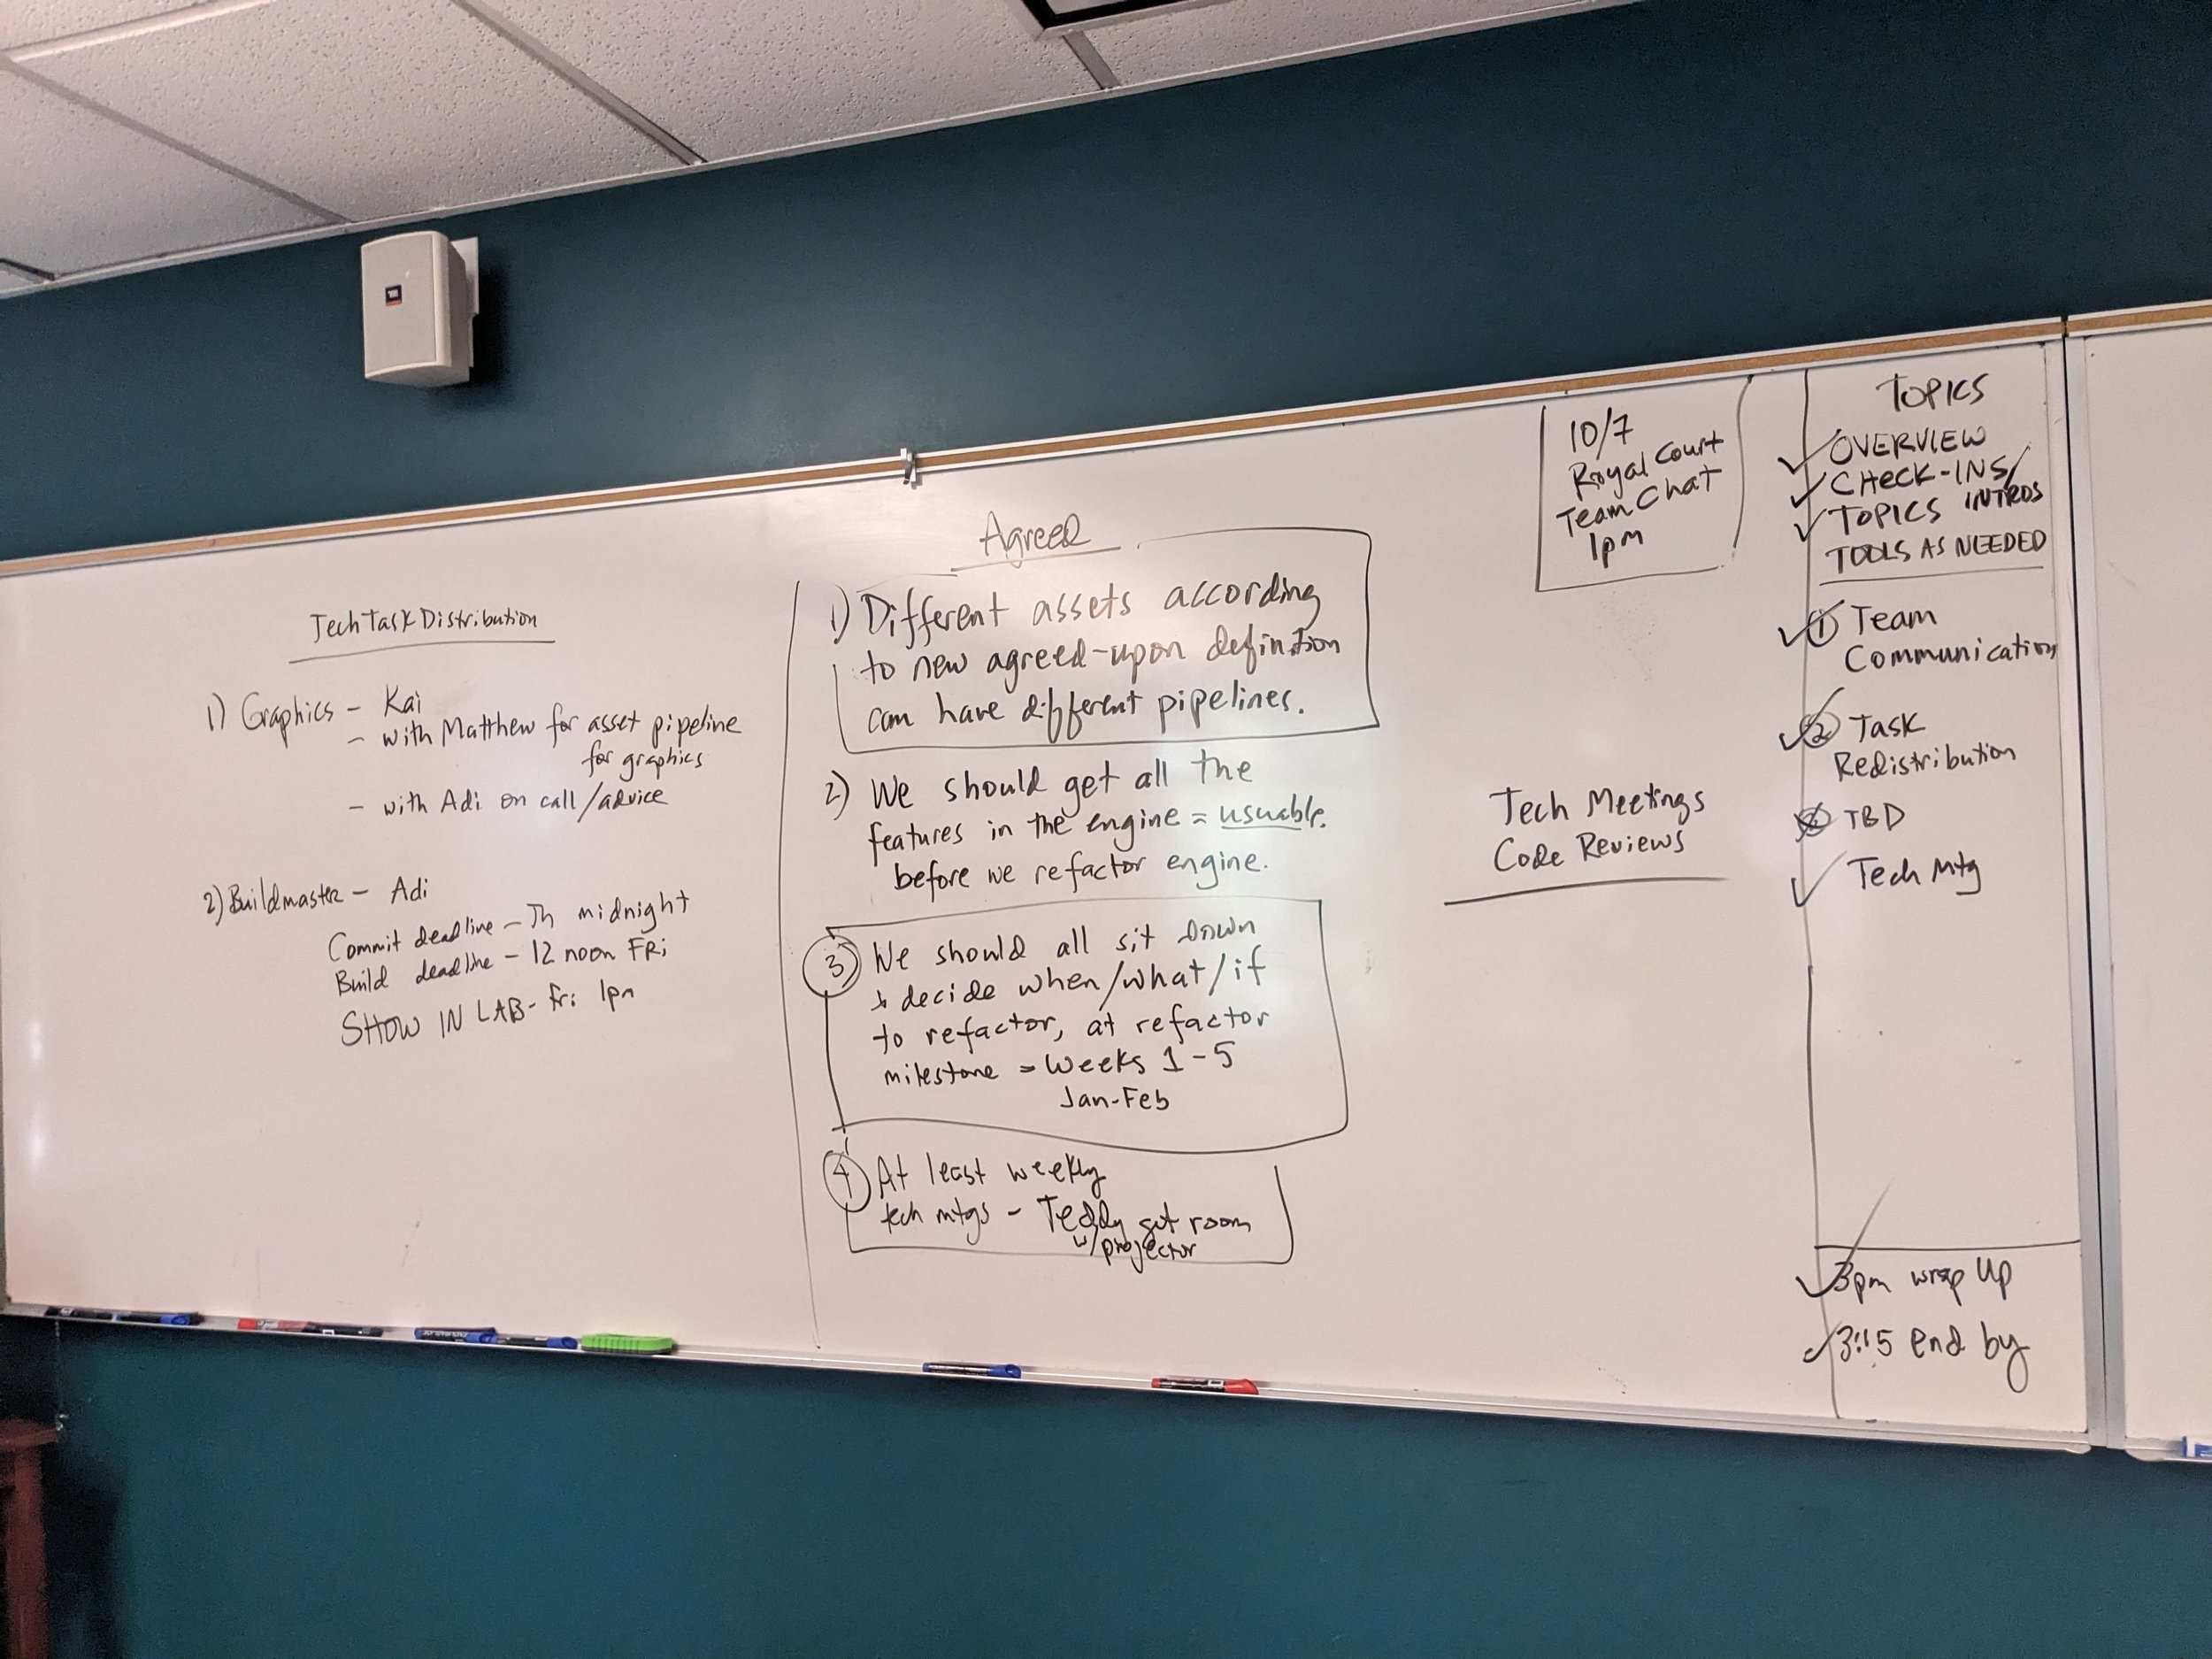 Tech Task Distribution
1) Graphics - Kai
- with Matthew for asset pipeline
for graphics
- with Adi on call/advice
2) Buildmaster - Adi
Commit deadline - Th midnight
Build deadline - 12 noon FRi
SHOW IN LAB - Fri 1pm
Agreed
1) Different assets according
to new agreed-upon definition
can have different pipelines.
2) We should get all the
features in the engine = usuable.
before we refactor engine.
3) We should all sit down
& decide when/what/if
to refactor, at refactor
milestone = Weeks 1-5
Jan-Feb
4) At least weekly
tech mtgs - Teddy get room
w/projector
10/7
Royal Court
Team Chat
1pm
Tech Meetings
Code Reviews
TOPICS
OVERVIEW
CHECK-INS/
INTROS
TOPICS
TOOLS AS NEEDED
1 Team
Communication
2 Task
Redistribution
3 TBD
Tech Mtg
3pm wrap up
3:15 end by